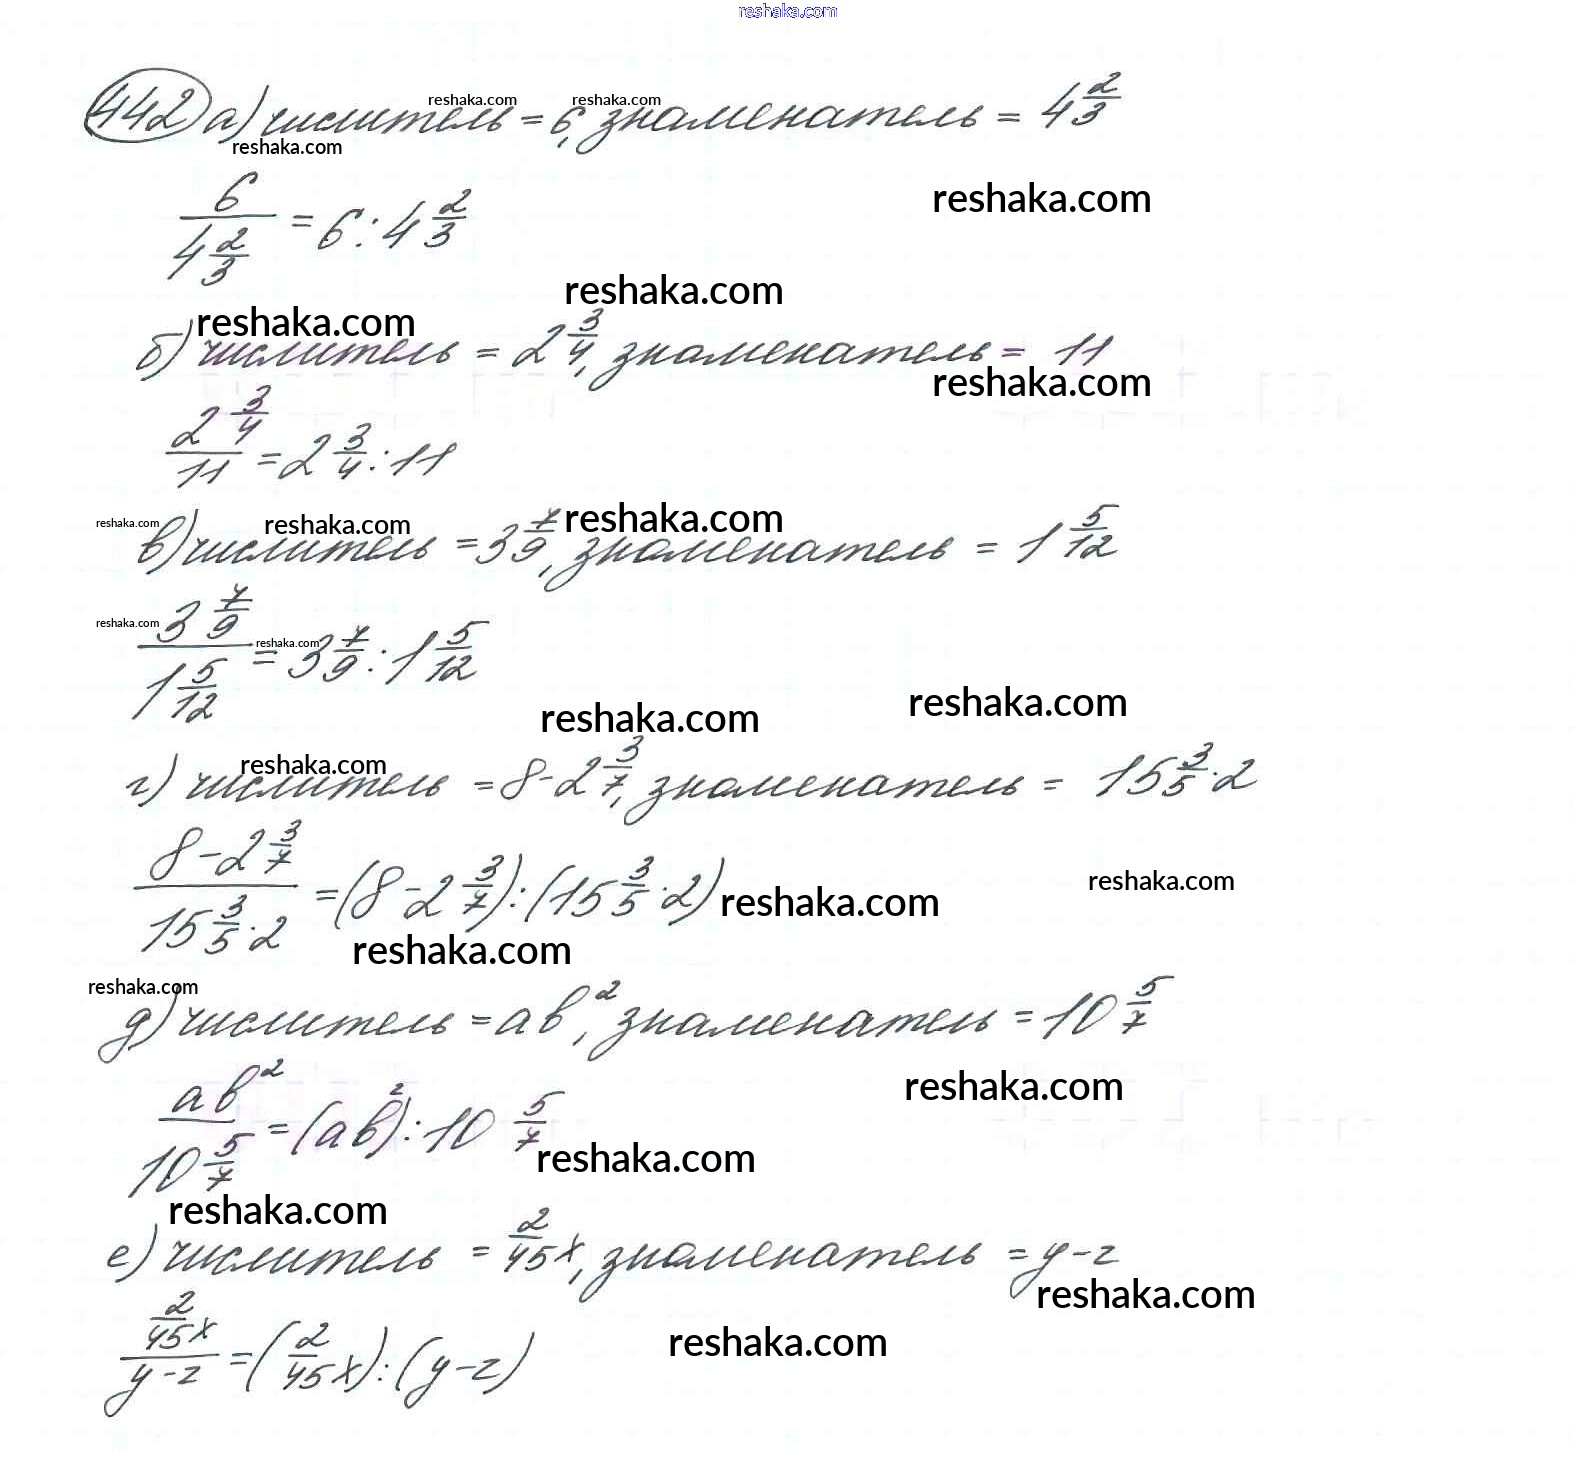 reshaka.com
442 а) числитель = 6, знаменатель = 4 2/3
reshaka.com reshaka.com
reshaka.com
6/(4 2/3) = 6 : 4 2/3
reshaka.com
reshaka.com
reshaka.com
б) числитель = 2 3/4, знаменатель = 11
reshaka.com
(2 3/4)/11 = 2 3/4 : 11
reshaka.com reshaka.com reshaka.com
в) числитель = 3 7/9, знаменатель = 1 5/12
reshaka.com reshaka.com
(3 7/9)/(1 5/12) = 3 7/9 : 1 5/12
reshaka.com reshaka.com
reshaka.com
г) числитель = 8 - 2 3/7, знаменатель = 15 3/5 · 2
(8 - 2 3/7)/(15 3/5 · 2) = (8 - 2 3/7) : (15 3/5 · 2)
reshaka.com reshaka.com
reshaka.com
reshaka.com
д) числитель = ab², знаменатель = 10 5/7
reshaka.com
ab²/(10 5/7) = (ab²) : 10 5/7
reshaka.com
reshaka.com
е) числитель = 2/45 x, знаменатель = y - z
reshaka.com
(2/45 x)/(y - z) = (2/45 x) : (y - z)
reshaka.com